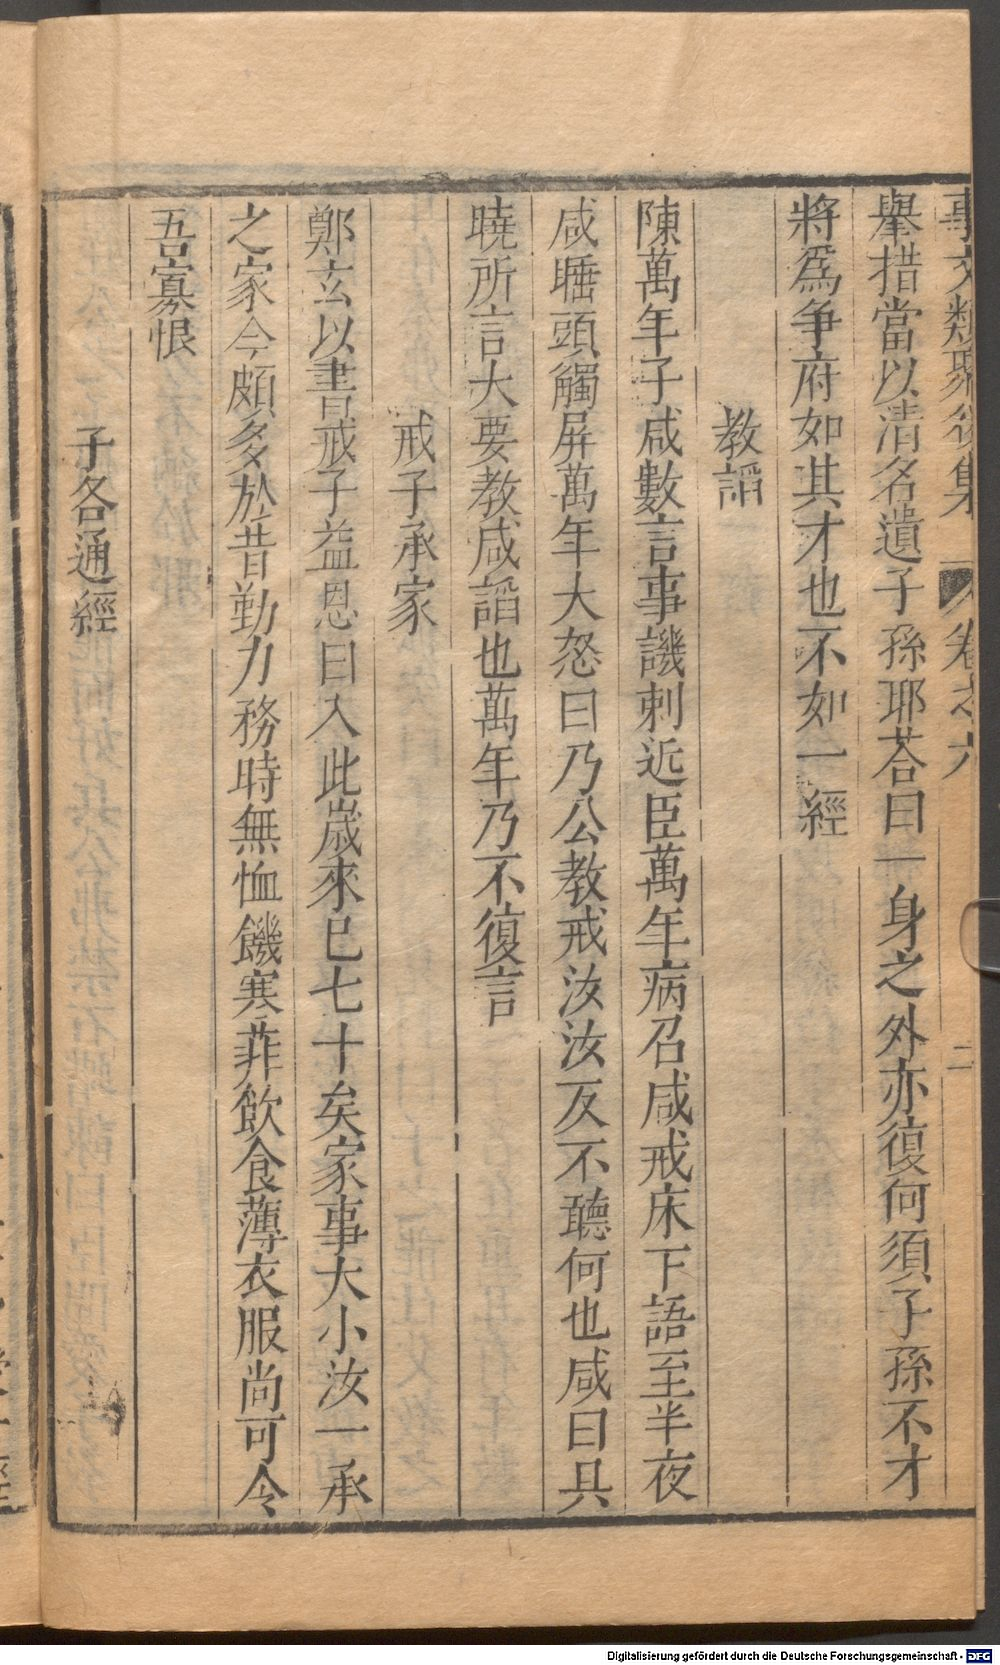 事文類聚後集 卷之六 二
舉措當以清名遺子孫耶荅曰一身之外亦復何須子孫不才
將爲争府如其才也不如一經
教謟
陳萬年子咸數言事譏刺近臣萬年病召咸戒床下語至半夜
咸睡頭觸屏萬年大怒曰乃公教戒汝汝反不聽何也咸曰具
曉所言大要教咸謟也萬年乃不復言
戒子承家
鄭玄以書戒子益恩曰入此歲來已七十矣家事大小汝一承
之家今頗多於昔勤力務時無恤饑寒菲飲食薄衣服尚可令
吾寡恨
子各通經
Digitalisierung gefördert durch die Deutsche Forschungsgemeinschaft - DFG